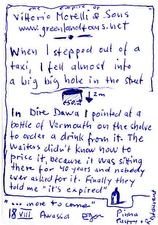 the empire of
Vittorio Morelli & Sons
www.greenlandtoys.net
When I stepped out of a
taxi, I fell almost into
a big big hole in the street
2m
In Dire Dawa I pointed at a
bottle of Vermouth on the shelve
to order a drink from it. The
waiters didn't know how to
price it, because it was sitting
there for 40 years and nobody
ever asked for it. Finally they
told me "it's expired"
"... more to come"
18 VIII Awassa